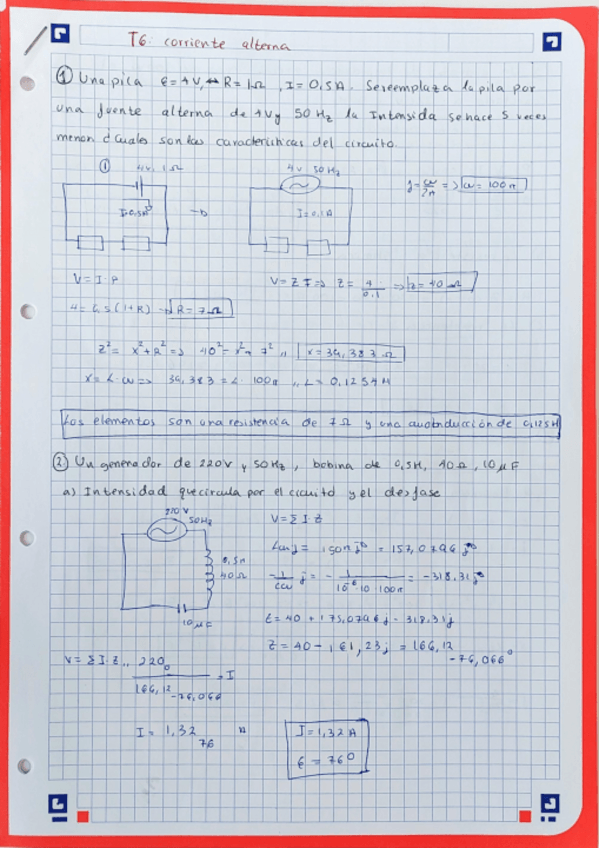 T6: corriente alterna
① Una pila ε = 4V, R = 1Ω, I = 0.5A. Se reemplaza la pila por
una fuente alterna de 4V y 50 Hz la Intensida se hace 5 veces
menor ¿Cuales son las características del circuito.
①
4v, 1Ω
I=0.5A
4v 50 Hz
I=0.1A
f = ω/2π => ω = 100π
V = I·R
4 = 0,5 (1+R) → R = 7Ω
V = Z I => Z = 4/0.1 => Z = 40 Ω
Z² = x² + R² => 40² = x² + 7² ,, x = 39,383 Ω
x = L·ω => 39,383 = L·100π ,, L = 0,1254H
Los elementos son una resistencia de 7Ω y una autoinducción de 0,125H
② Un generador de 220V y 50Hz, bobina de 0,5H, 40Ω, 10μF
a) Intensidad que circula por el circuito y el desfase
220 V
50Hz
0.5H
40Ω
10μF
V = Σ I·Z
Lωj = 150π j = 157,0796 j
-1/cω j = - 1/10⁻⁶·10·100π = -318.31j
Z = 40 + 175,0796j - 318.31j
Z = 40 - 161,23j = 166,12 -76,066°
V = Σ I·Z ,, 220₀ / 166,12 -76,066 = I
I = 1,32 76 A
I = 1,32 A
φ = 76°